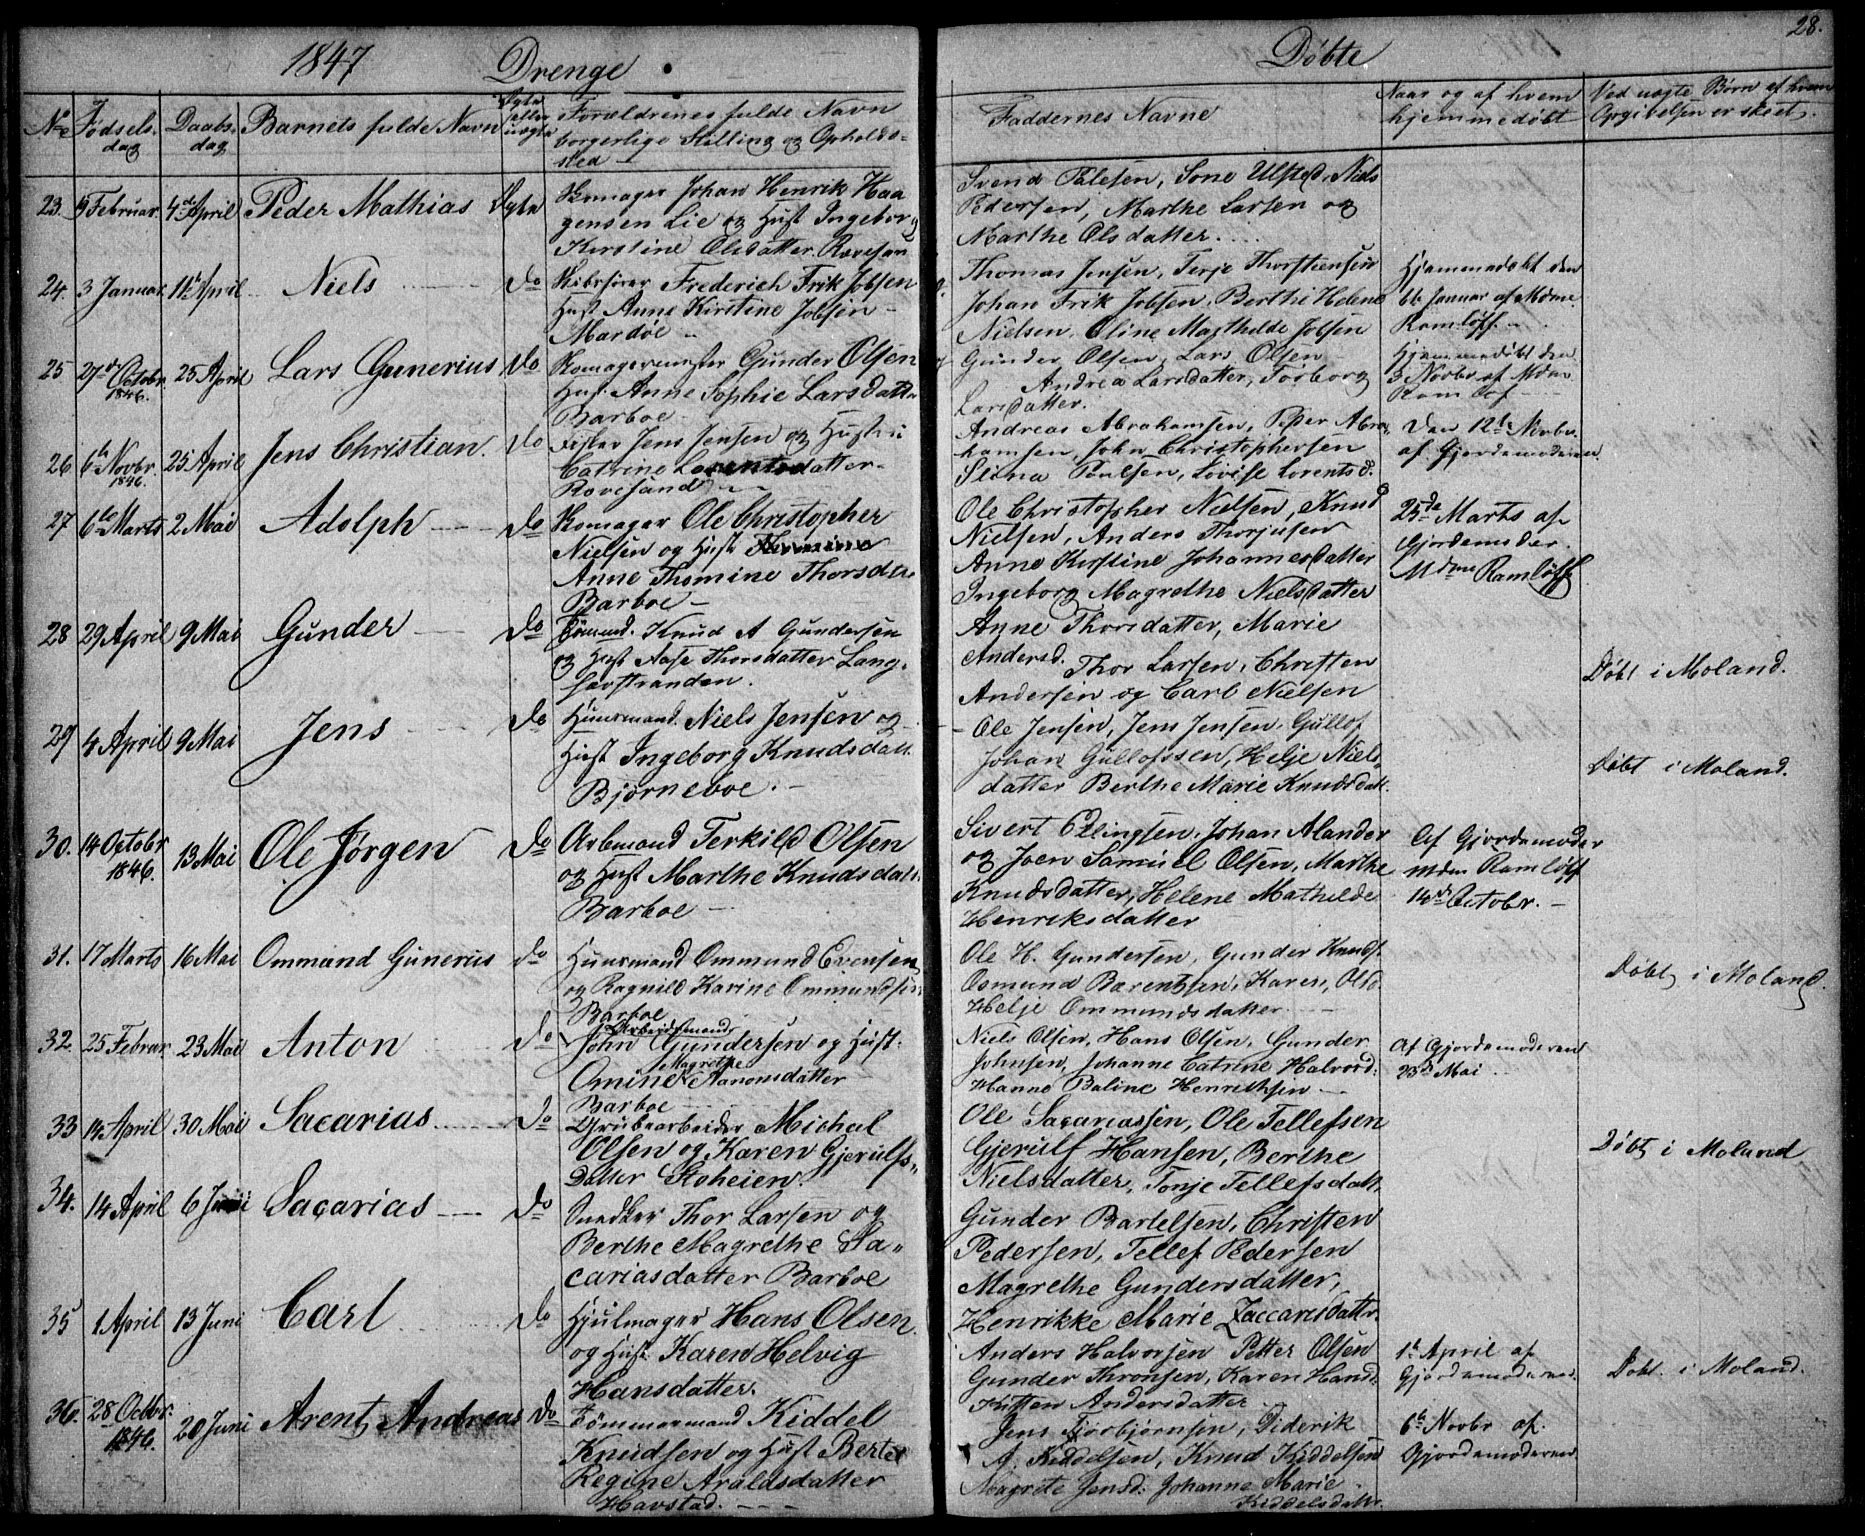 1847 Drenge
Døbte
28.
No Fødsels- Daabs- Barnets fulde Navn Ægte Forældrenes fulde Navn
dag dag eller uægte borgerlige Stilling og Opholds-
sted
Faddernes Navne
Naar og af hvem
hjemmedøbt
Ved uægte Børn af hvem
Opgivelsen er skeet.
23. Februar 4de April Peder Mathias Ægte
Skomager Johan Henrik Haa
gensen Lie og Hust Ingeborg
Kirstine Olsdatter Revesan
Svend Palesen, Sone Ulsted, Niels
Pedersen, Marthe Larsen og
Marthe Olsdatter.
24. 3 Januar 11te April Niels do
Skibsfører Frederich Frik Jobsen
Hust Anne Kirstine Jobsen
Mardøe
Thomas Jensen, Terje Thorstensen
Johan Frik Jobsen, Berthe Helene
Nielsen, Oline Mathilde Jobsen
Hjemmedøbt den
6te Januar af Mdme
Ramløff.
25 27de Octobr 25 April Lars Gunerius do
1846.
Skomagermester Gunder Olsen
Hust Anne Sophie Larsdattr
Barboe
Gunder Olsen, Lars Olsen
Andrea Larsdatter, Torborg
Larsdatter.
Hjemmedøbt den
3 Novbr af Mdme
Ramløf
26 6te Novbr. 25 April Jens Christian. do
1846.
Fisker Jens Jensen og Hustru
Catrine Lorentsdatter
Revesand
Andreas Abrahamsen, Peder Abra
hamsen, John Christophersen
Stina Poulsen, Lovise Lorentsd.
Den 12te Novbr.
af Gjordemoderen
27 6te Marts 2 Mai Adolph do
Skomager Ole Christopher
Nielsen og Hust
Anne Thomine Thorsdtr
Barboe
Ole Christopher Nielsen, Knud
Nielsen, Anders Thorjusen
Anne Kirstine Johannesdatter
Ingeborg Magrethe Nielsdatter
25de Marts af
Gjordemoder
Mdme Ramløff
28 29 April 9 Mai Gunder do
Tømmd. Knud A Gundersen
og Hust Aase Thorsdatter Lang-
sævstranden.
Anne Thorsdatter, Marie
Andersd. Thor Larsen, Christen
Andersen og Carl Nielsen
Døbt i Moland.
29 4 April 9 Mai Jens do
Huusmand Niels Jensen og
Hust Ingeborg Knudsdatt.
Bjørneboe.
Ole Jensen, Jens Jensen, Gullof
Johan Gullofssen, Helje Niels-
datter Berthe Marie Knudsdatt.
Døbt i Moland.
30. 14 Octobr 13 Mai Ole Jørgen do
1846.
Arbmand Terkild Olsen
og Hust Marthe Knudsdatt.
Barboe
Sivert Ellingsen, Johan Alander
og Joen Samuel Olsen, Marthe
Knudsdatter, Helene Mathilde
Henriksdatter
Af Gjordemoder
Mdm Ramløff
14de Octobr.
31. 17 Marts 16 Mai Ommund Gunerius do
Huusmand Ommund Evensen
og Ragnild Karine Ommundsen
Barboe
Ole H. Gundersen, Gunder Knuds.
Osmund Barentsen, Karen Olsd
Helje Ommundsdatter
Døbt i Moland.
32. 25 Februar 23 Mai Anton do
Arbeidsmand
John Gundersen og Hust.
Magrethe
Omine Aanonsdatter
Barboe
Niels Olsen, Hans Olsen, Gunder
Johnsen, Johanne Catrine Halvord:
Hanne Baline Henriksen
Af Gjordemoderen
23de Mai
33 14 April 30 Mai Sacarias do
Grubearbeider Michal
Olsen og Karen Gjerulfs-
datter Stoheien
Ole Sacariassen, Ole Tellefsen
Gjerulf Hansen, Berthe
Nielsdatter, Tonje Tellefsdatt.
Døbt i Moland
34. 14 April 6 Juni Sacarias do
Snedker Thor Larsen og
Berthe Magrethe Sa-
cariasdatter Barboe
Gunder Bartelsen, Christen
Pedersen, Tellef Pedersen
Magrethe Gundersdatter,
Henrikke Marie Zaccarisdatter.
35 1 April 13 Juni Carl do
Hjulmager Hans Olsen
og Hust Karen Helvig
Hansdatter.
Anders Halvorsen Petter Olsen
Gunder Thronsen, Karen Hansd.
Jutten Andersdatter
1te April af
Gjordemoderen.
Døbt. i Moland.
36. 28 Octbr. 20 Juni Arent Andreas do
1846.
Tømmermand Kiddel
Knudsen og Hust Bertel
Regine Araldsdatter
Havstad.
Jens Torbjørnsen, Diderik
A. Kiddelsen, Knud Kiddelsen
Magrete Jensd. Johanne Marie
Kiddelsdatter.
6te Novbr af.
Gjordemoderen